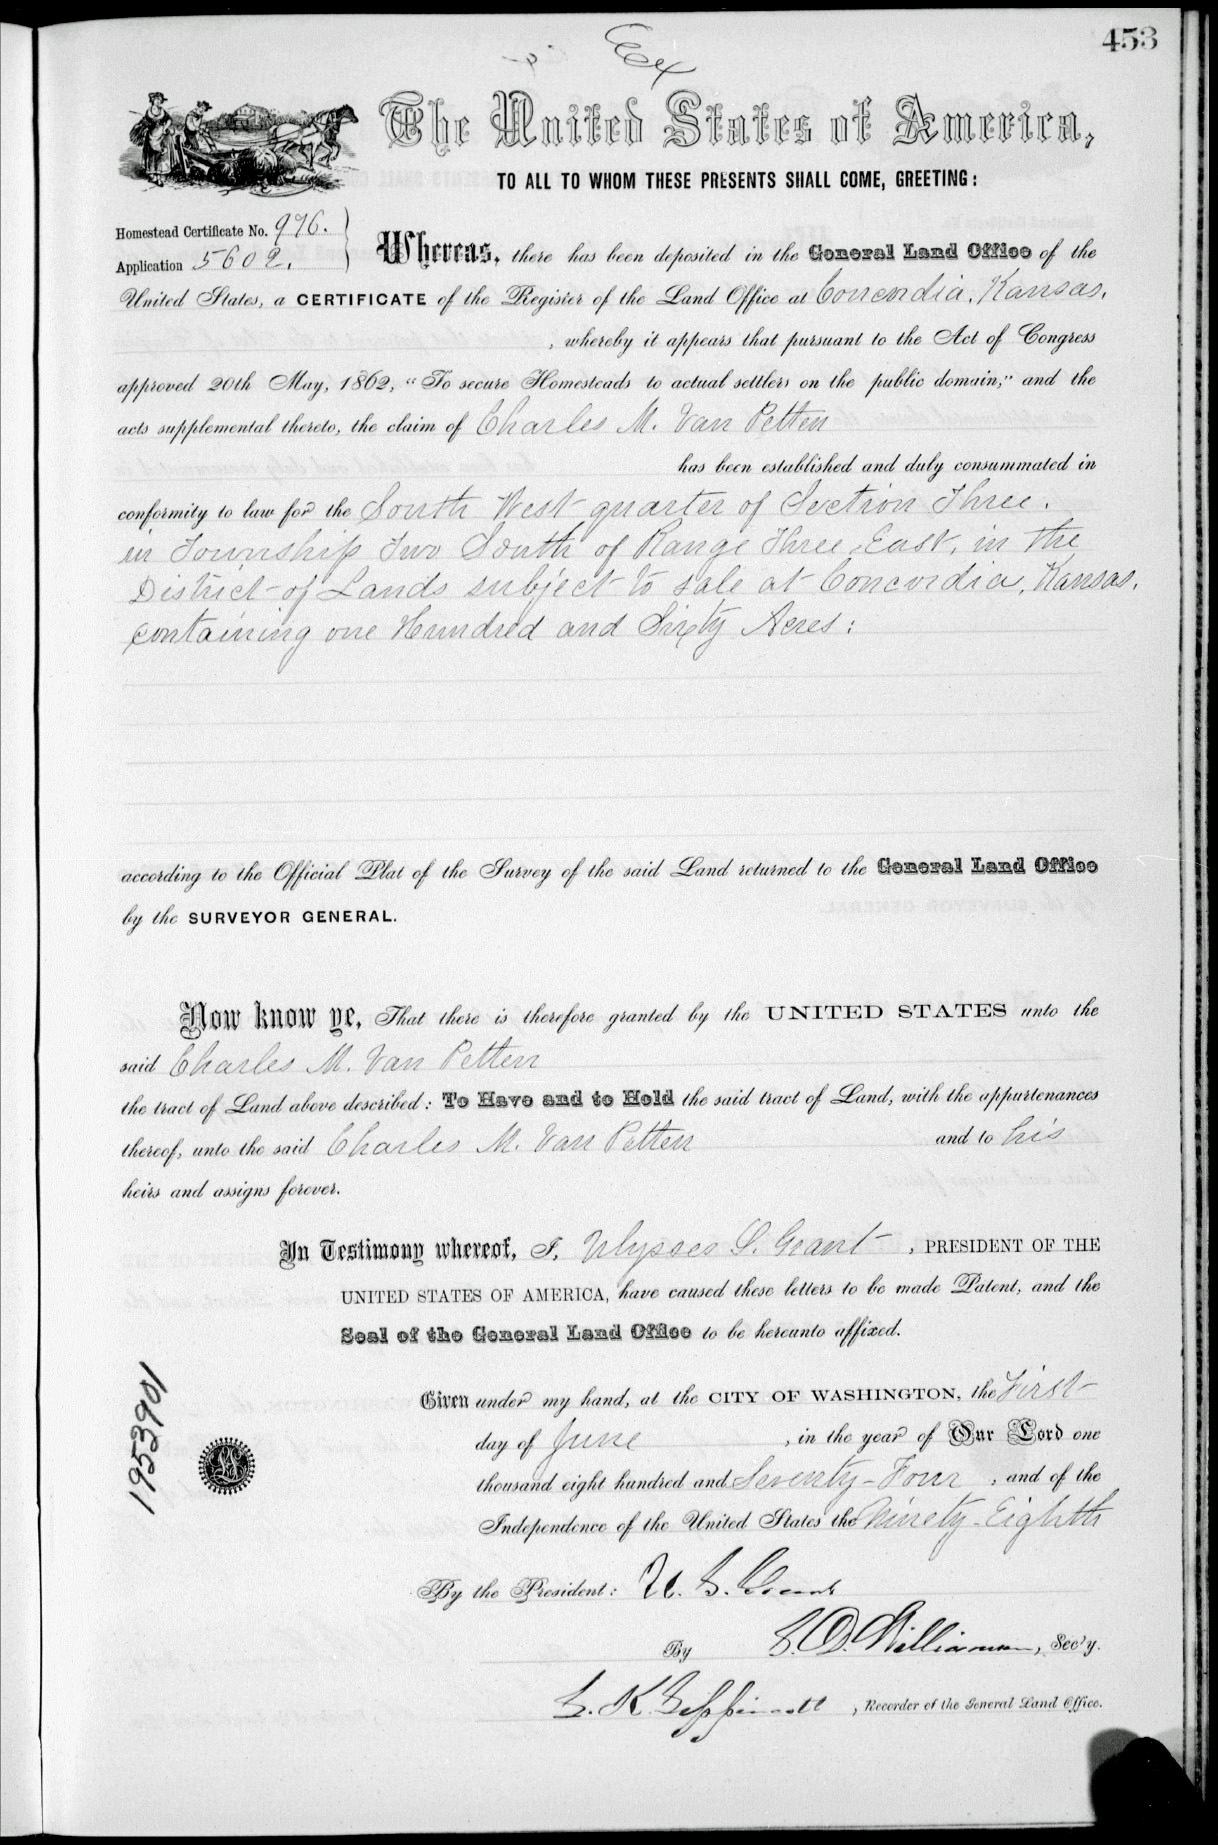 453
Ex
The United States of America,
TO ALL TO WHOM THESE PRESENTS SHALL COME, GREETING:
Homestead Certificate No. 976.
Application 5602.
Whereas, there has been deposited in the General Land Office of the
United States, a CERTIFICATE of the Register of the Land Office at Concordia, Kansas,
, whereby it appears that pursuant to the Act of Congress
approved 20th May, 1862, "To secure Homesteads to actual settlers on the public domain," and the
acts supplemental thereto, the claim of Charles M. Van Petten
has been established and duly consummated in
conformity to law for the South West quarter of Section Three.
in Township Two South of Range Three East, in the
District of Lands subject to sale at Concordia, Kansas,
containing one Hundred and Sixty Acres:
according to the Official Plat of the Survey of the said Land returned to the General Land Office
by the SURVEYOR GENERAL.
Now know ye, That there is therefore granted by the UNITED STATES unto the
said Charles M. Van Petten
the tract of Land above described: To Have and to Hold the said tract of Land, with the appurtenances
thereof, unto the said Charles M. Van Petten and to his
heirs and assigns forever.
In Testimony whereof, I, Ulysses S. Grant, PRESIDENT OF THE
UNITED STATES OF AMERICA, have caused these letters to be made Patent, and the
Seal of the General Land Office to be hereunto affixed.
Given under my hand, at the CITY OF WASHINGTON, the First
day of June, in the year of Our Lord one
thousand eight hundred and Seventy-Four, and of the
Independence of the United States the Ninety-Eighth
1953901
By the President: U. S. Grant
By S. D. Williamson, Sec'y.
, Recorder of the General Land Office.